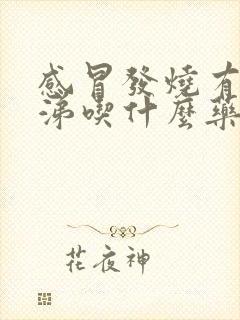 感冒發燒有
涕喫什麼藥
花夜神